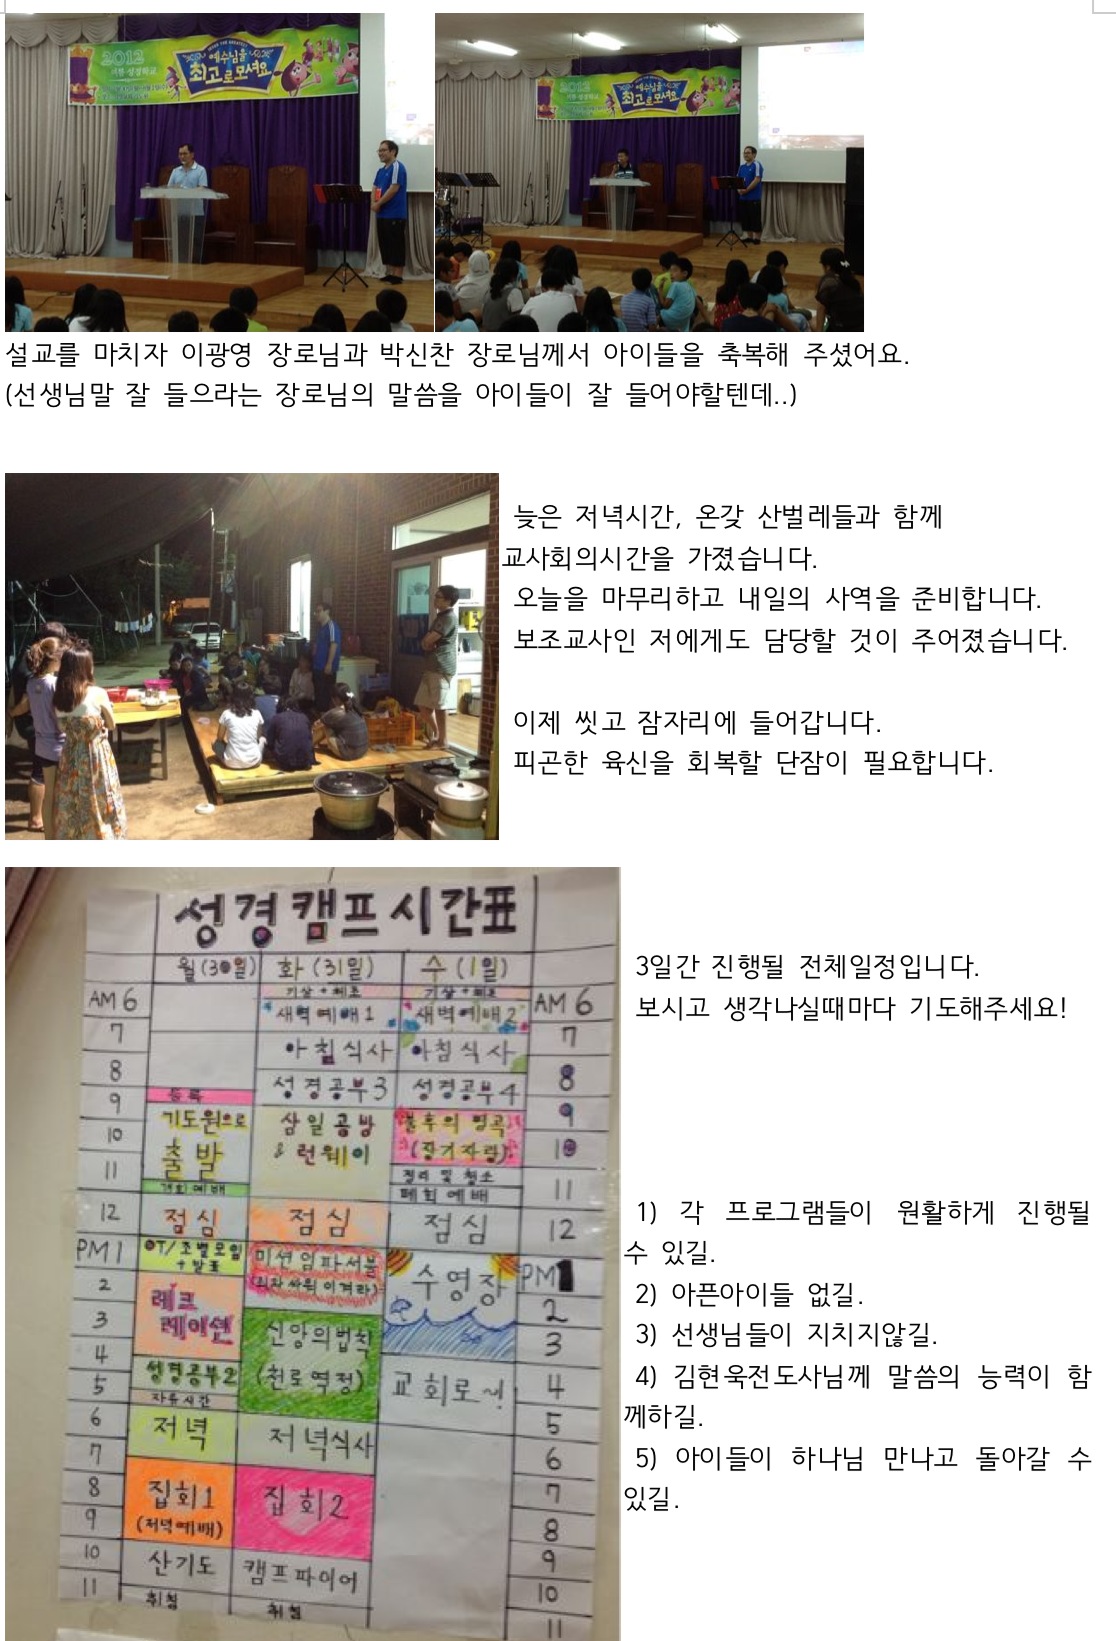 2012
여름 성경학교
예수님을
최고로 모셔요
2012
여름 성경학교
예수님을
최고로 모셔요
설교를 마치자 이광영 장로님과 박신찬 장로님께서 아이들을 축복해 주셨어요.
(선생님말 잘 들으라는 장로님의 말씀을 아이들이 잘 들어야할텐데..)
늦은 저녁시간, 온갖 산벌레들과 함께
교사회의시간을 가졌습니다.
오늘을 마무리하고 내일의 사역을 준비합니다.
보조교사인 저에게도 담당할 것이 주어졌습니다.
이제 씻고 잠자리에 들어갑니다.
피곤한 육신을 회복할 단잠이 필요합니다.
성경캠프시간표
월(30일) 화(31일) 수(1일)
기상+체조 기상+체조
AM 6 새벽예배1 새벽예배2 AM 6
7 아침식사 아침식사 7
8 성경공부3 성경공부4 8
9 등록 9
10 기도원으로 삼일공방 불후의 명곡 10
출발 & 런웨이 (장기자랑)
11 개회예배 정리 및 청소 11
폐회예배
12 점심 점심 점심 12
PM 1 OT/조별모임 미션임파서블 수영장 PM 1
+발표
2 레크 2
3 레이션 신앙의법칙 3
4 (천로역정) 교회로~! 4
5 성경공부2 5
자유시간
6 저녁 저녁식사 6
7 7
8 집회1 집회2 8
9 (저녁예배) 9
10 산기도 캠프파이어 10
11 취침 취침 11
3일간 진행될 전체일정입니다.
보시고 생각나실때마다 기도해주세요!
1) 각 프로그램들이 원활하게 진행될
수 있길.
2) 아픈아이들 없길.
3) 선생님들이 지치지않길.
4) 김현욱전도사님께 말씀의 능력이 함
께하길.
5) 아이들이 하나님 만나고 돌아갈 수
있길.